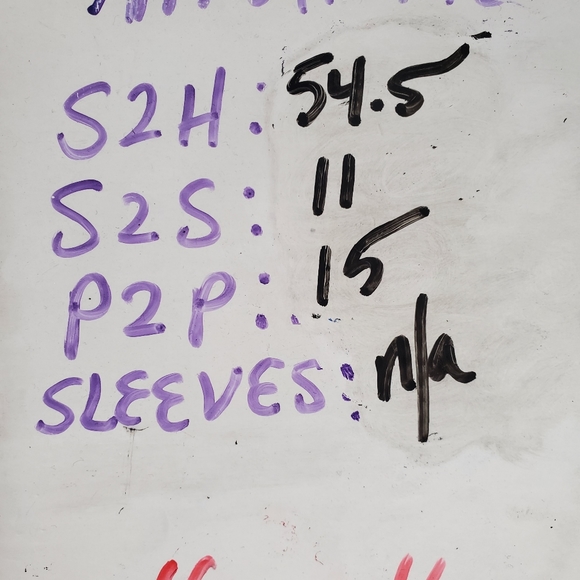 S2H: 54.5
S2S: 11
P2P: 15
SLEEVES: n/a